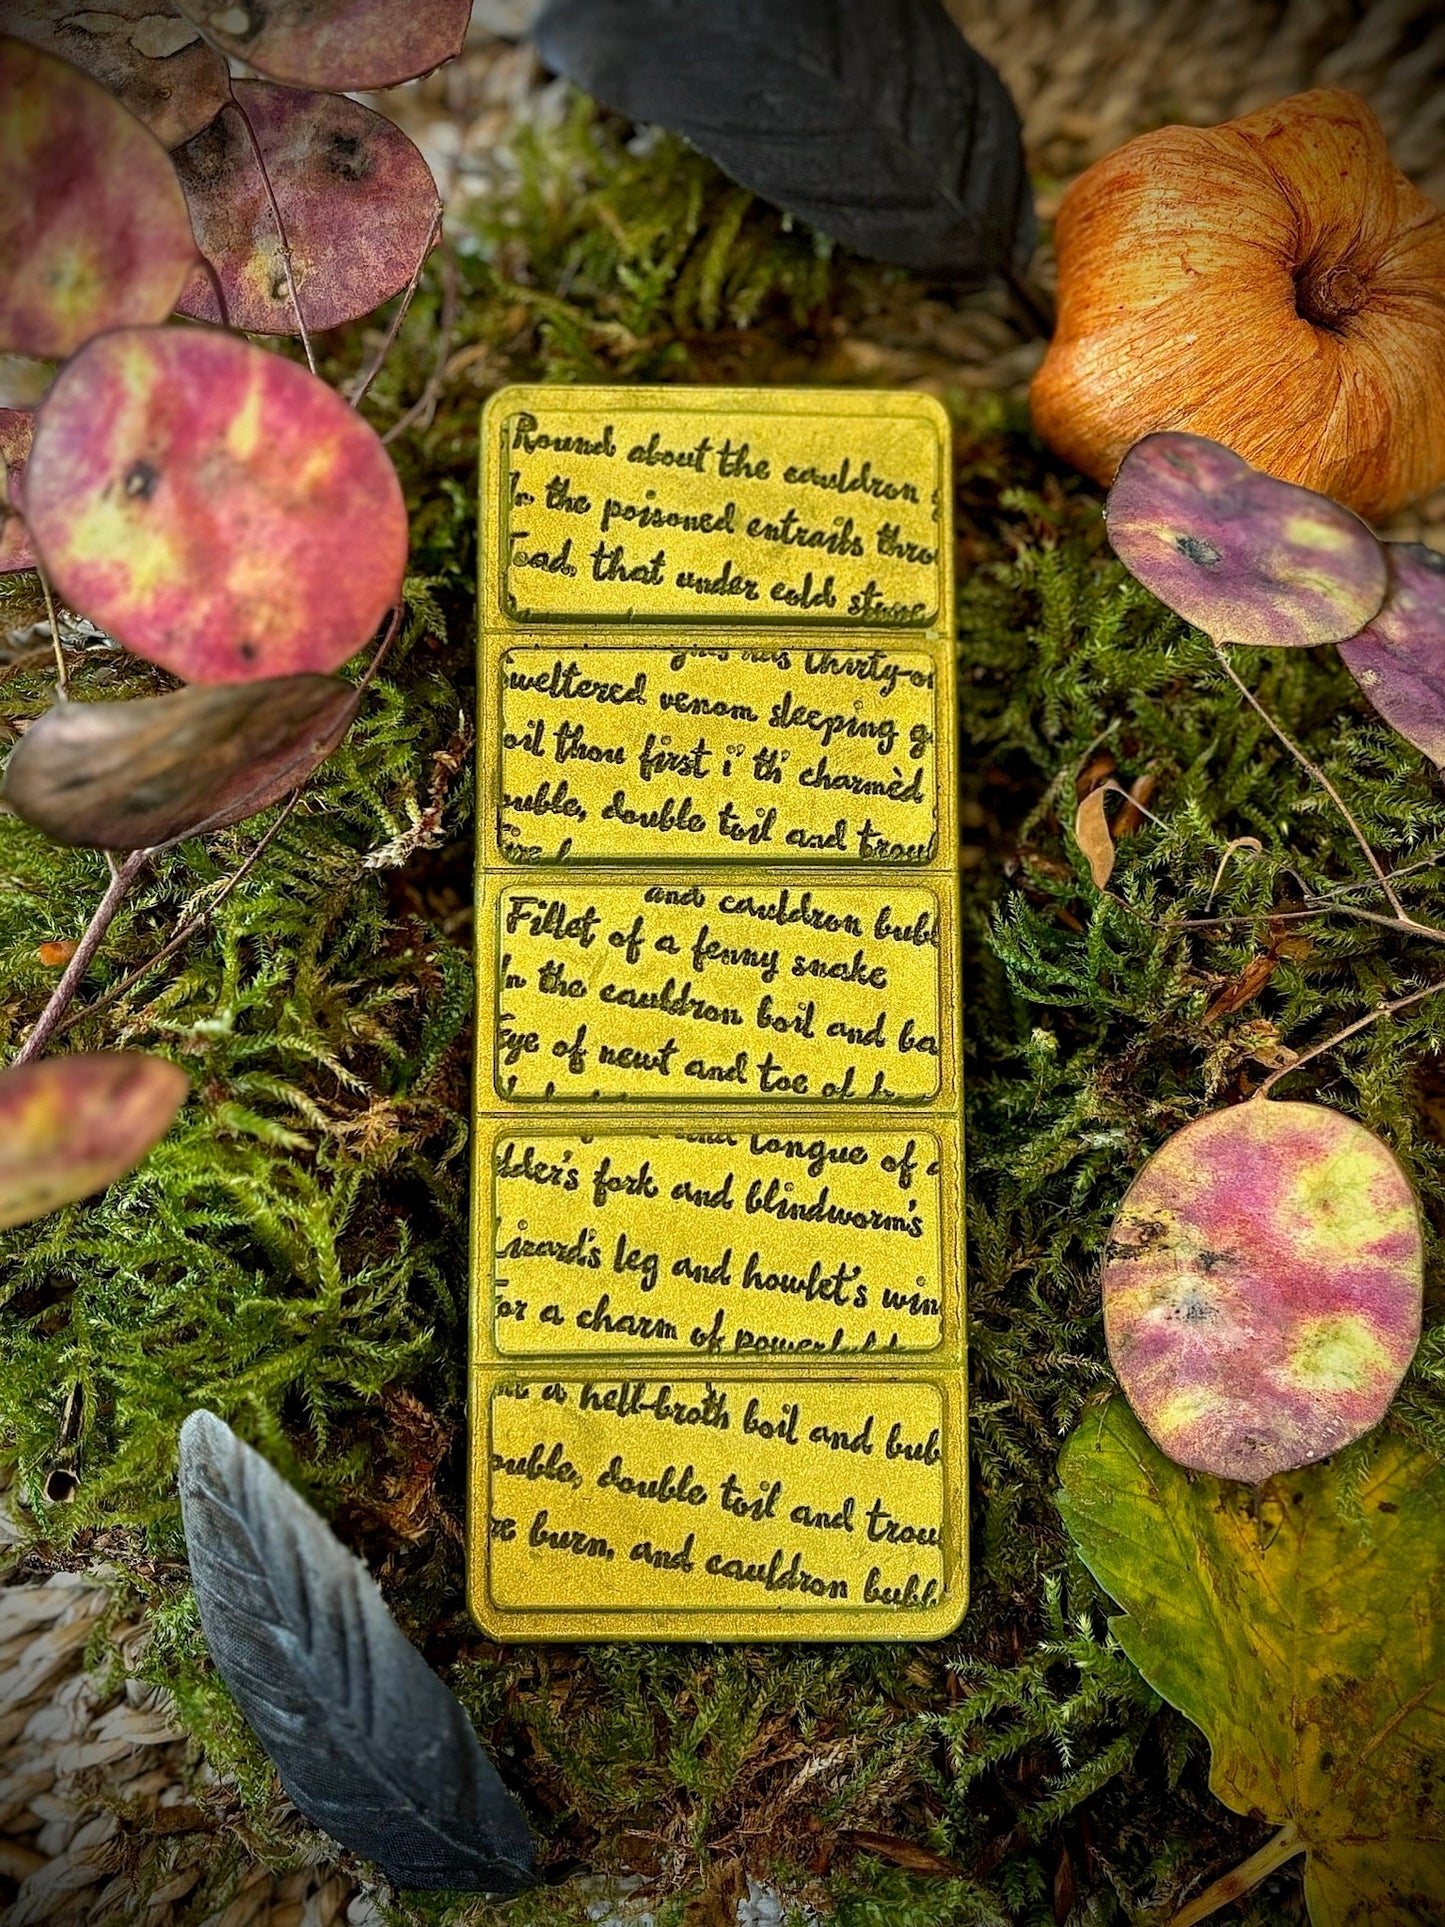 Round about the cauldron
In the poisoned entrails thro
Toad, that under cold stone
has thirty-on
Sweltered venom sleeping g
oil thou first i' th' charmèd
ouble, double toil and troub
and cauldron bubb
Fillet of a fenny snake
In the cauldron boil and ba
Eye of newt and toe of
and tongue of
dder's fork and blindworm's
Lizard's leg and howlet's win
For a charm of powerful
a hell-broth boil and bub
ouble, double toil and trou
re burn, and cauldron bubbl